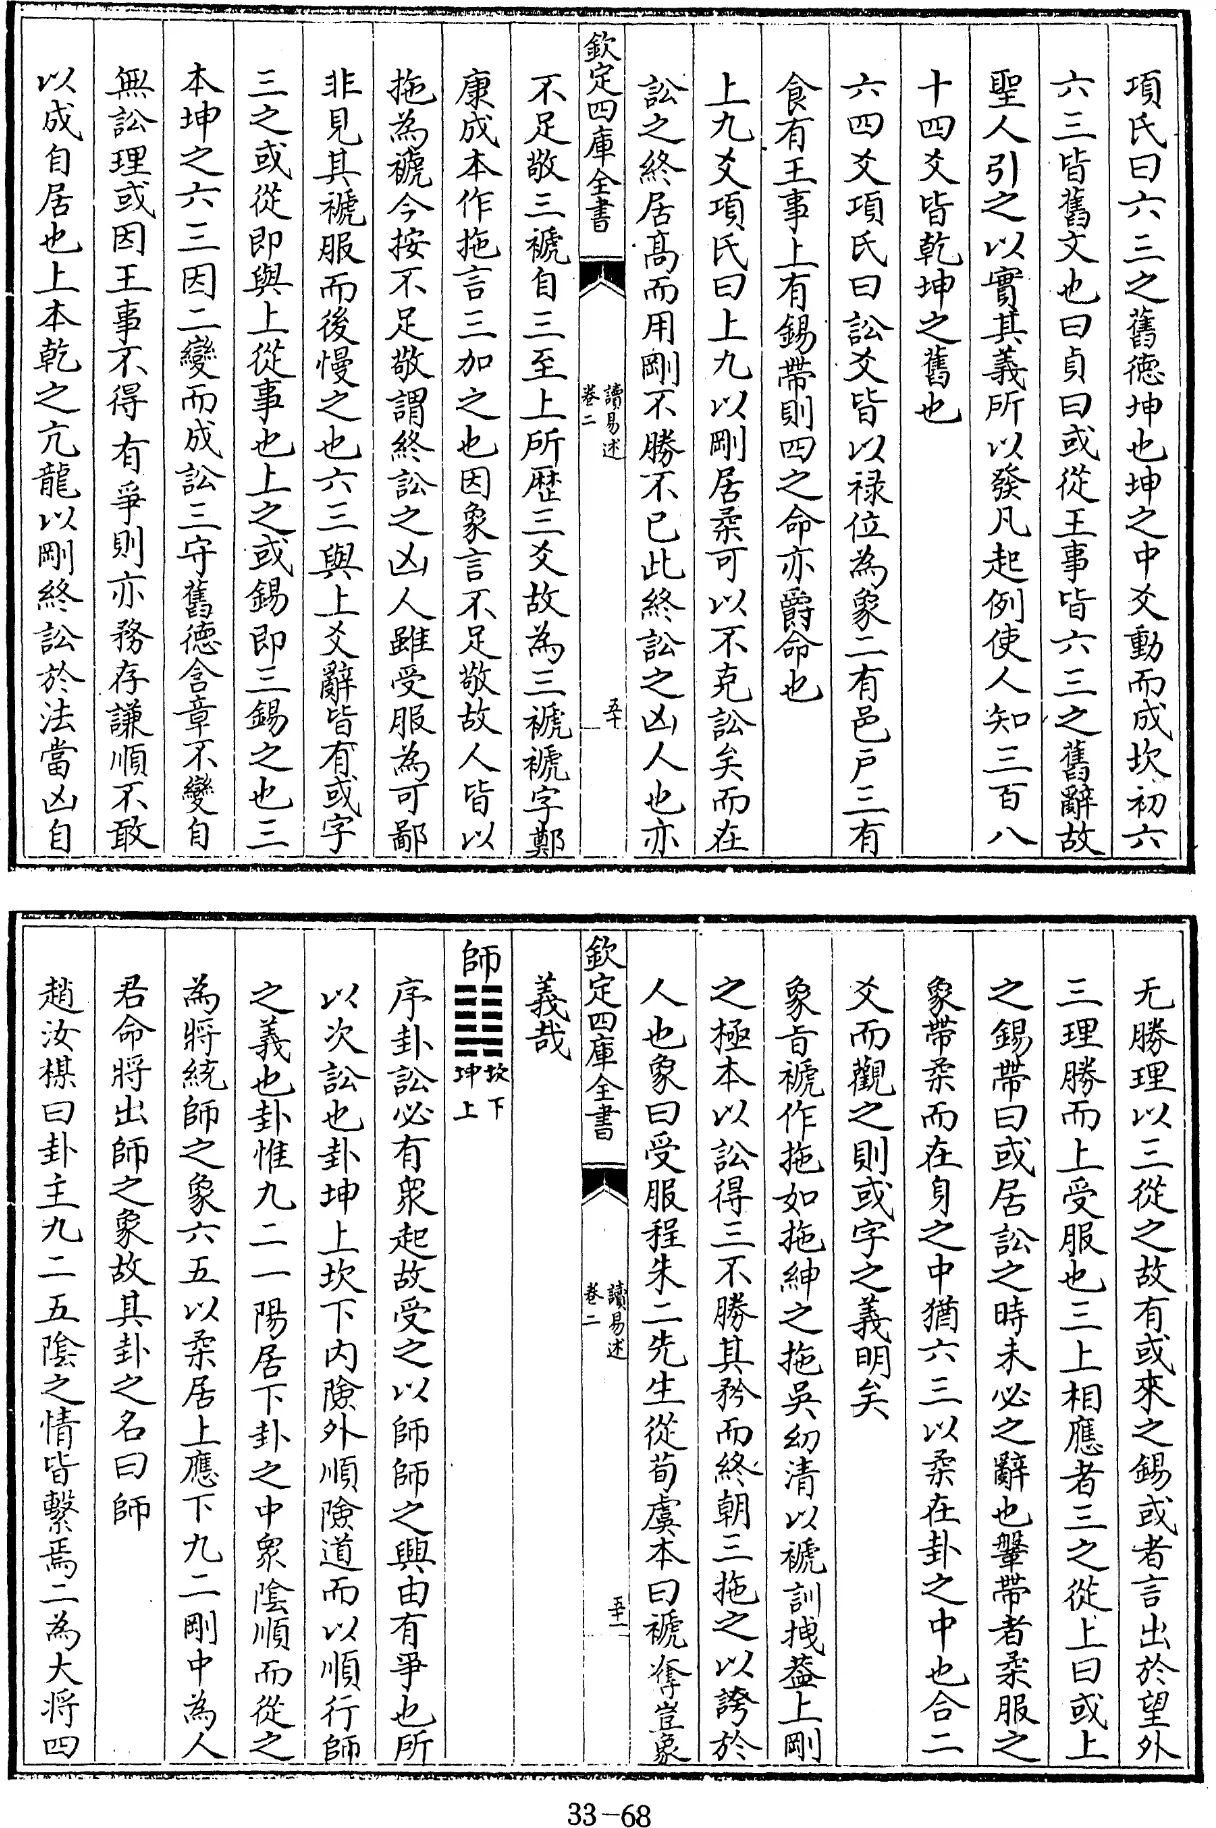 項氏曰六三之舊德坤也坤之中爻動而成坎初六
六三皆舊文也曰貞曰或從王事皆六三之舊辭故
聖人引之以實其義所以發凡起例使人知三百八
十四爻皆乾坤之舊也
六四爻項氏曰訟爻皆以禄位為象二有邑戸三有
食有王事上有錫帶則四之命亦爵命也
上九爻項氏曰上九以剛居柔可以不克訟矣而在
訟之終居髙而用剛不勝不已此終訟之凶人也亦
欽定四庫全書
讀易述
卷二
五十
不足敬三褫自三至上所歴三爻故為三褫褫字鄭
康成本作拖言三加之也因象言不足敬故人皆以
拖為褫今按不足敬謂終訟之凶人雖受服為可鄙
非見其褫服而後慢之也六三與上爻辭皆有或字
三之或從即與上從事也上之或錫即三錫之也三
本坤之六三因二變而成訟三守舊德含章不變自
無訟理或因王事不得有爭則亦務存謙順不敢
以成自居也上本乾之亢龍以剛終訟於法當凶自
无勝理以三從之故有或來之錫或者言出於望外
三理勝而上受服也三上相應者三之從上曰或上
之錫帶曰或居訟之時未必之辭也鞶帶者柔服之
象帶柔而在身之中猶六三以柔在卦之中也合二
爻而觀之則或字之義明矣
象旨褫作拖如拖紳之拖吳幼清以褫訓拽葢上剛
之極本以訟得三不勝其矜而終朝三拖之以誇於
人也象曰受服程朱二先生從荀虞本曰褫奪豈象
欽定四庫全書
讀易述
卷二
五十一
義哉
師䷆坎下坤上
序卦訟必有衆起故受之以師師之興由有爭也所
以次訟也卦坤上坎下内險外順險道而以順行師
之義也卦惟九二一陽居下卦之中衆陰順而從之
為將統師之象六五以柔居上應下九二剛中為人
君命將出師之象故其卦之名曰師
趙汝楳曰卦主九二五陰之情皆繫焉二為大將四
33-68